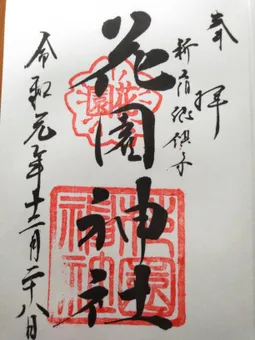 奉拝
新宿総鎮守
花園神社
令和元年十二月二十八日
花園
花園神社